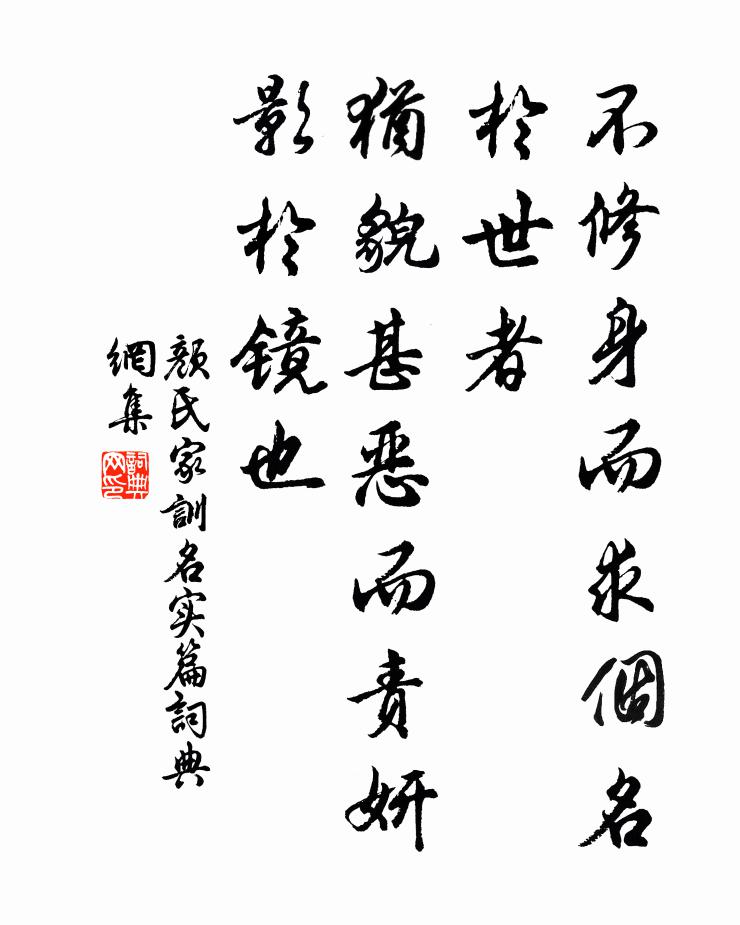 不修身而求個名
於世者
猶貌甚惡而責妍
影於鏡也
顏氏家訓名实篇詞典
網集
詞典
网印